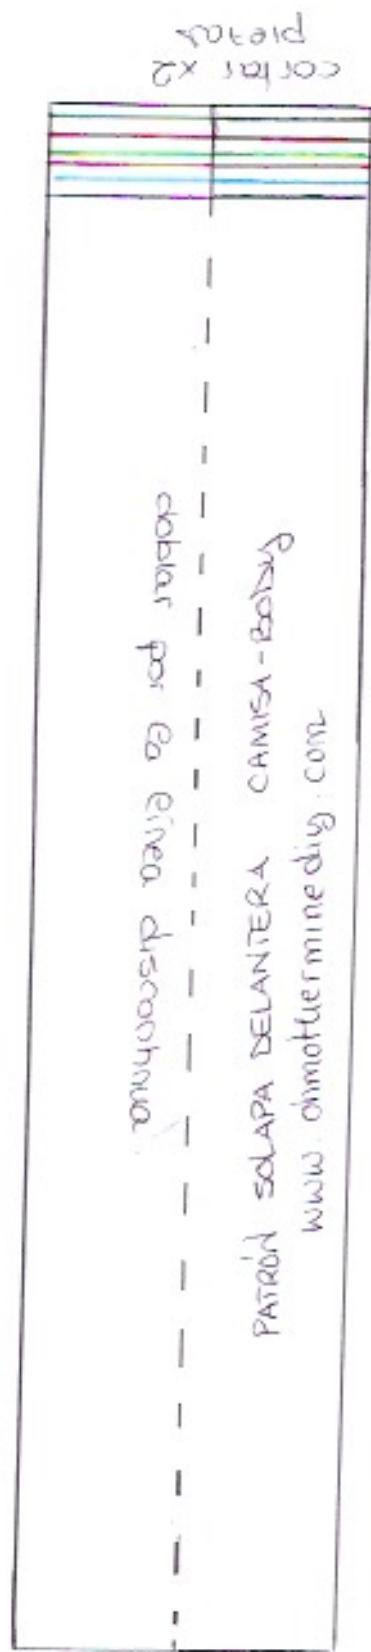 cortar x2
piezas
doblar por la línea discontinua
PATRÓN SOLAPA DELANTERA CAMISA-BODY
www.ohmothermine diy.com